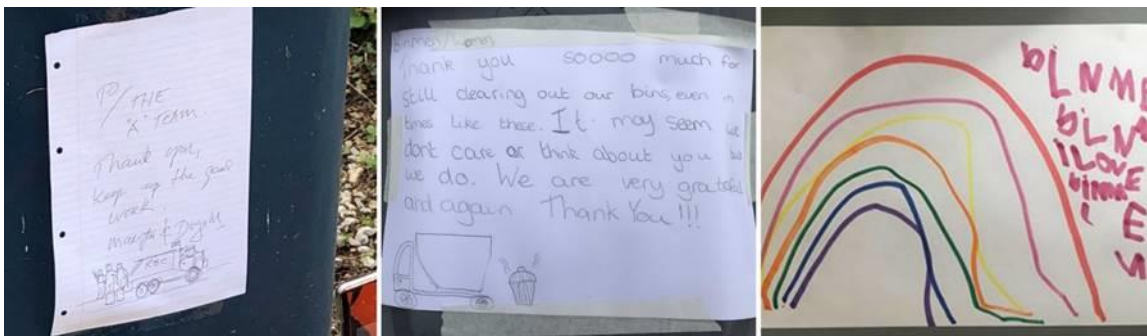 To/ THE
"A" TEAM
Thank you,
keep up the good
work.
RBC
binmen/womens
Thank you soooo much for
still clearing out our bins, even in
times like these. It may seem we
dont care or think about you but
we do. We are very grateful
and again Thank You!!!
bLNM
bLN
I LOVE
binm
E
S